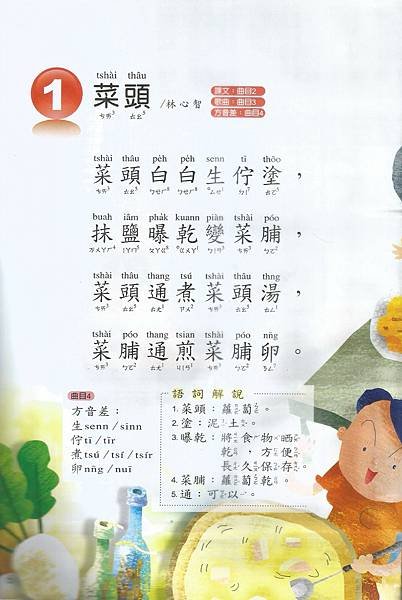 tshài thâu
1 菜頭 /林心智
ㄘㄞ³ ㄊㄠ⁵
課文：曲目2
歌曲：曲目3
方音差：曲目4
tshài thâu pe̍h pe̍h senn tī thôo
菜頭白白生佇塗，
buah iâm pha̍k kuann piàn tshài póo
抹鹽曝乾變菜脯，
tshài thâu thang tsú tshài thâu thng
菜頭通煮菜頭湯，
tshài póo thang tsian tshài póo nn̄g
菜脯通煎菜脯卵。
曲目4
方音差：
生senn / sinn
佇tī / tīr
煮tsú / tsí / tsír
卵nn̄g / nuī
語詞解說
1. 菜頭：蘿蔔。
2. 塗：泥土。
3. 曝乾：將食物晒
乾，方便
長久保存。
4. 菜脯：蘿蔔乾。
5. 通：可以。